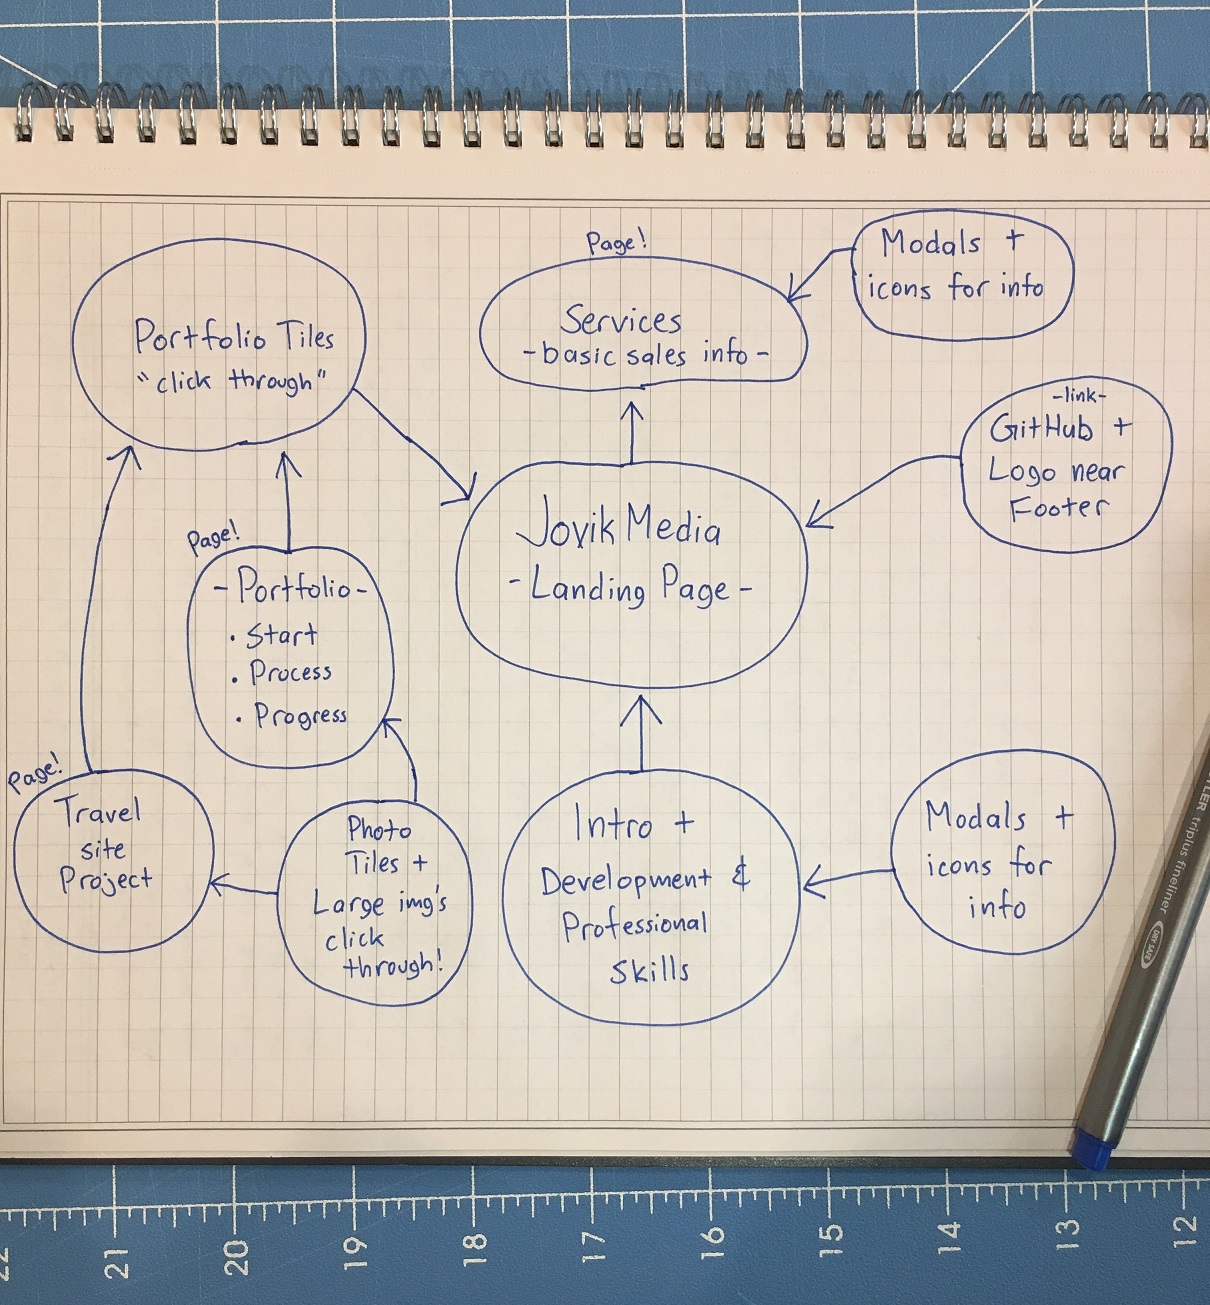 Page!
Modals +
icons for info
Services
-basic sales info-
Portfolio Tiles
"click through"
-link-
GitHub +
Logo near
Footer
Jovik Media
-Landing Page-
Page!
-Portfolio-
• Start
• Process
• Progress
Page!
Travel
site
Project
Photo
Tiles +
Large img's
click
through!
Intro +
Development &
Professional
Skills
Modals +
icons for
info
triplus fineliner
DRY SAFE
21
20
19
18
17
16
15
14
13
12